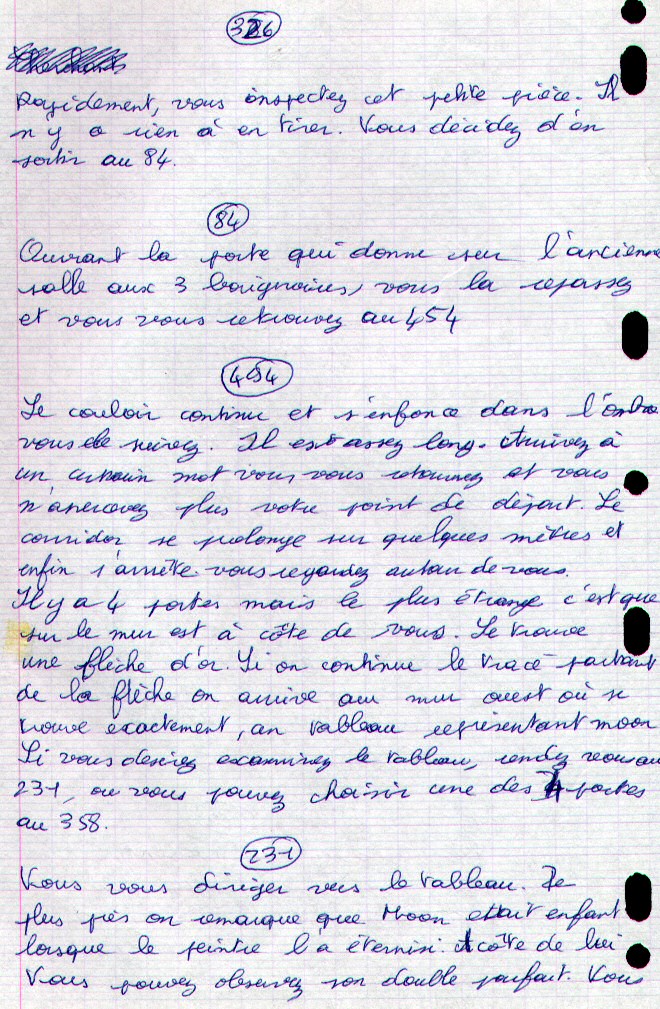 326
Rapidement, vous inspectez cet petite pièce. Il
n'y a rien à en tirer. Vous décidez d'en
sortir au 84.
84
Ouvrant la porte qui donne sur l'ancienne
salle aux 3 baignoires, vous la repassez
et vous vous retrouvez au 454
454
Le couloir continu et s'enfonce dans l'ombre
vous le suivez. Il est assez long. Arrivez à
un certain mot vous vous retournez et vous
n'apercevez plus votre point de départ. Le
corridor se prolonge sur quelques mètres et
enfin s'arrête. vous regardez autour de vous.
Il y a 4 portes mais le plus étrange c'est que
sur le mur est à côte de vous. Se trouve
une flèche d'or. Si on continue le tracé partant
de la flèche on arrive au mur ouest où se
trouve exactement, un tableau représentant moon
Si vous desirez examinez le tableau, rendez vous au
231, ou vous pouvez choisir une des 4 portes
au 358.
231
Vous vous diriger vers le tableau. De
plus près on remarque que Moon était enfant
lorsque le peintre l'a éternisé. A côte de lui
Vous pouvez observez son double parfait. Vous